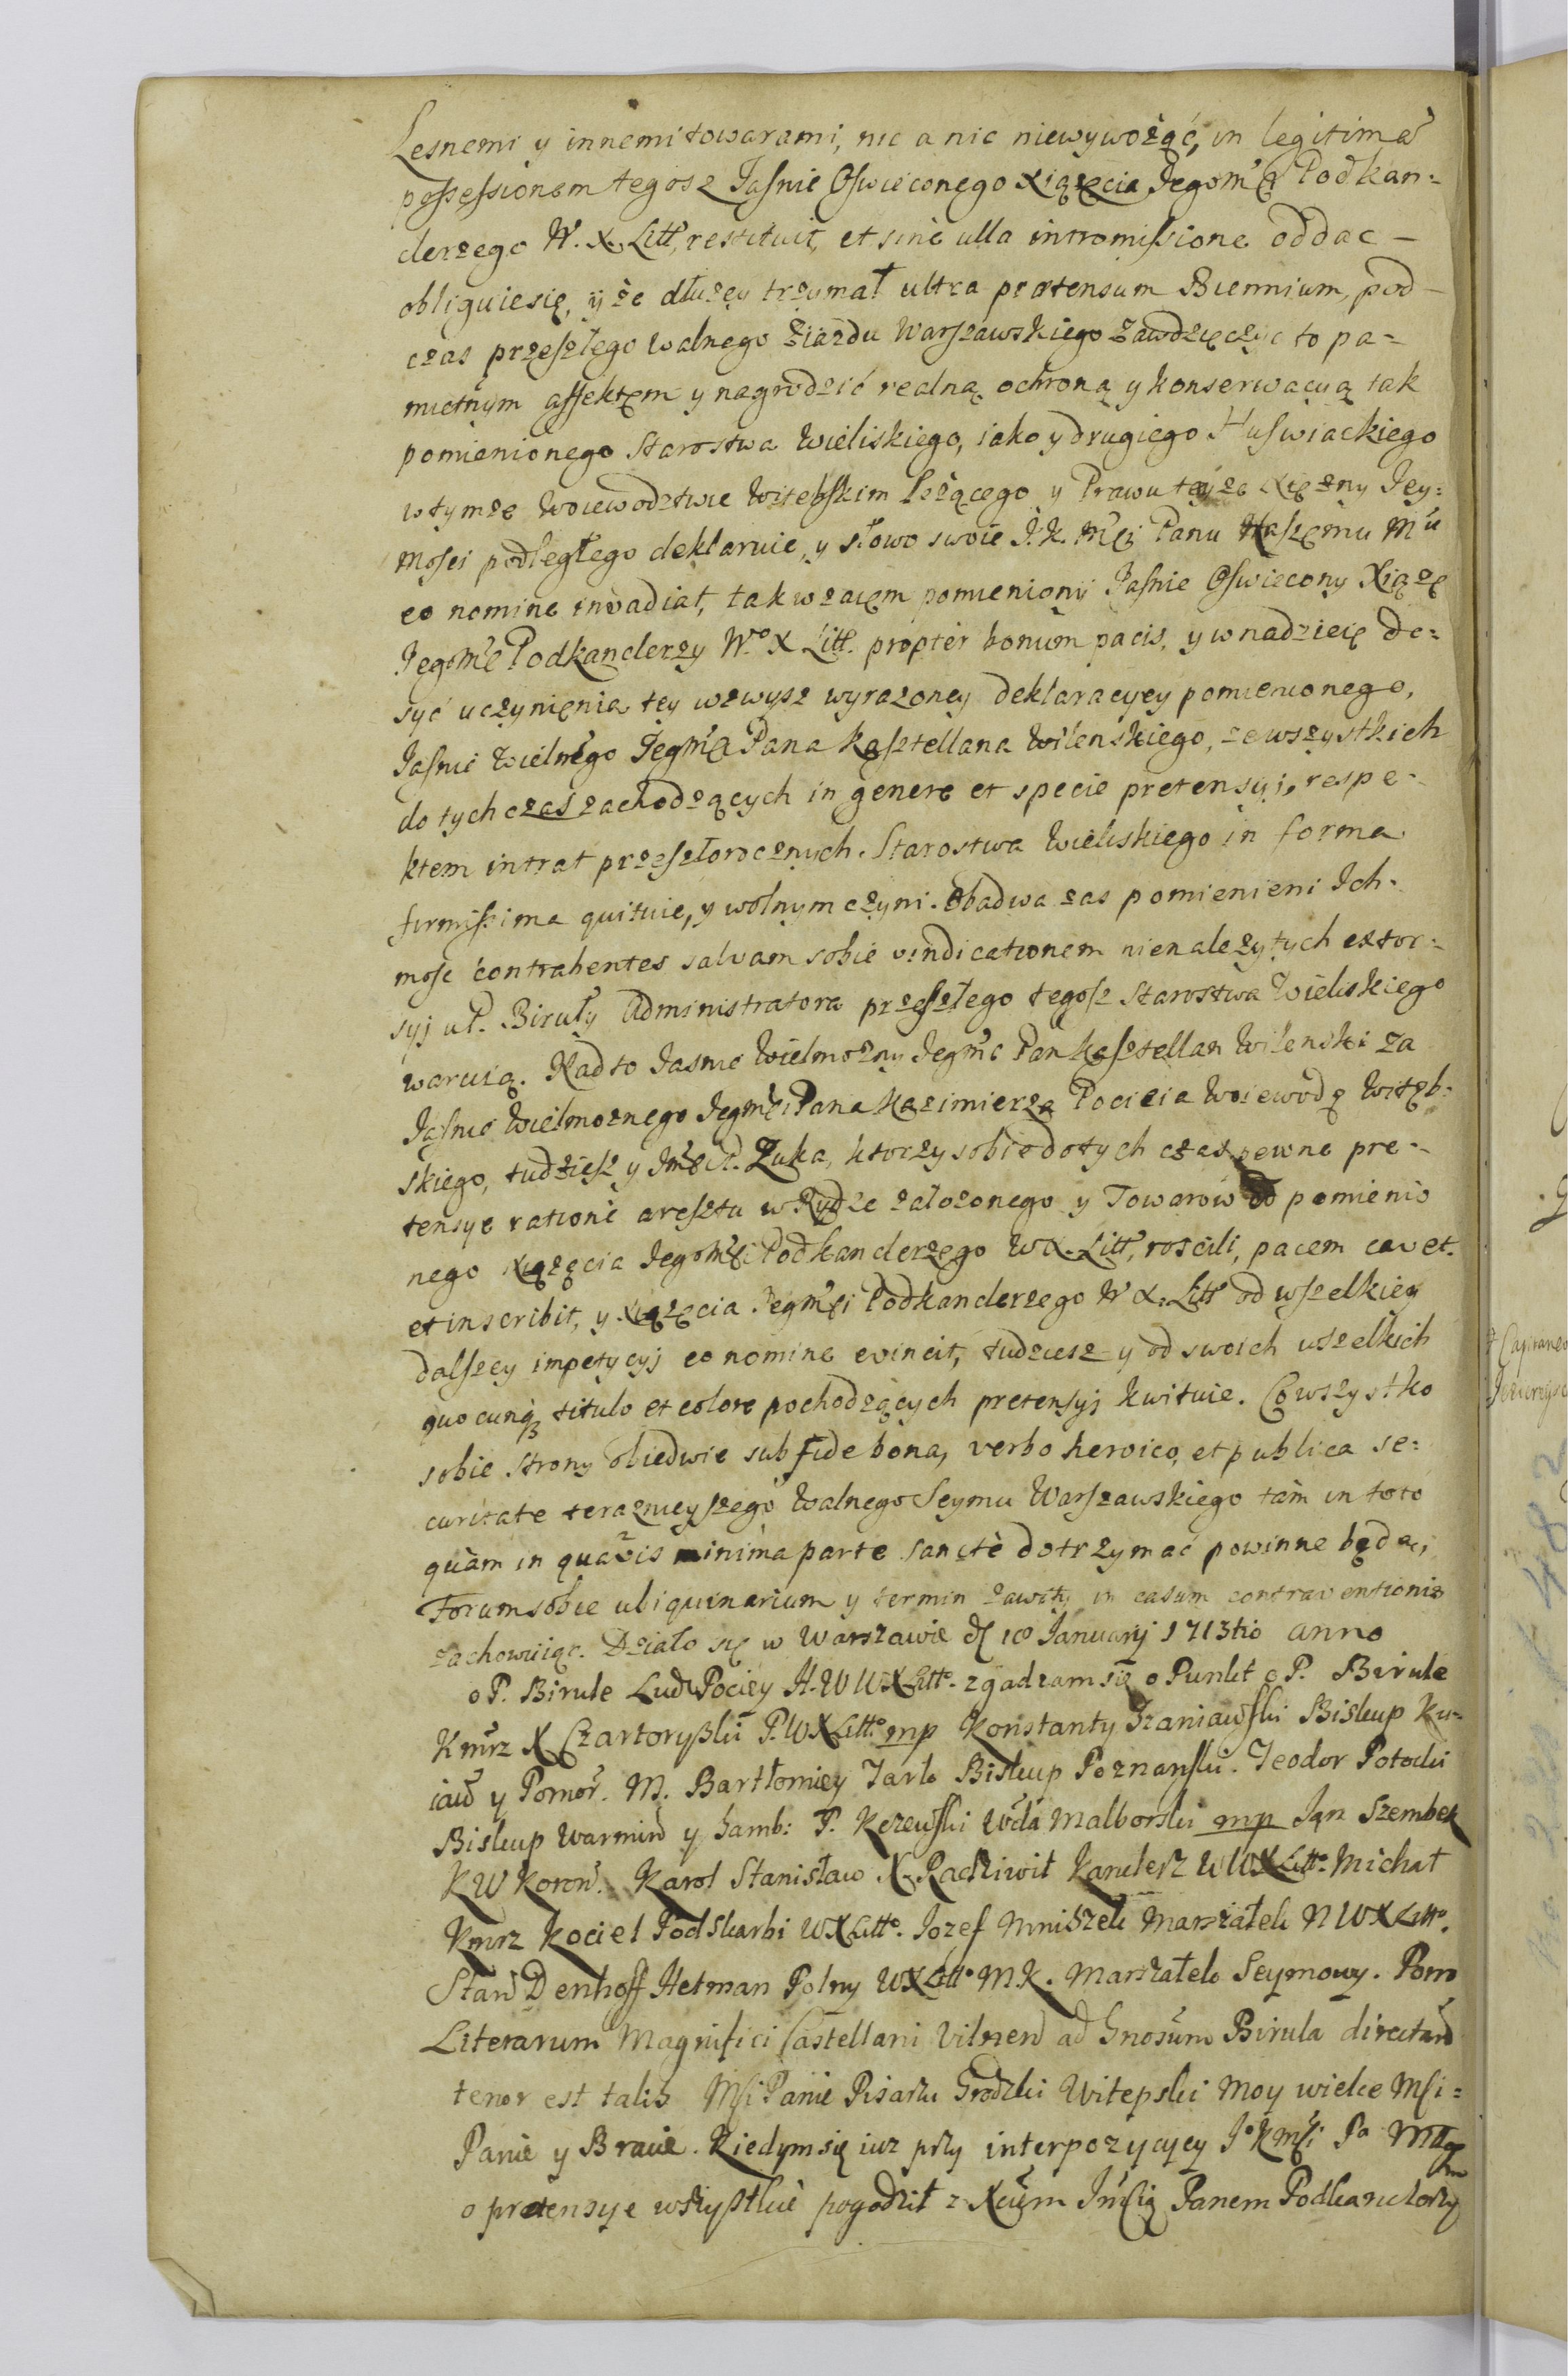 Lesnemi y innemi towarami, nic a nic niewywożąć, in legitimã
possessionem tegosz Jaśnie Oświeconego Xiążęcia Jegomći Podkan=
clerzego W. X. Litt, restituit, et sine ulla intromissione oddac –
obliguie się, y że dłużey trzymał ultra prætensum Biennium, pod –
czas przeszłego walnego Ziazdu Warszawskiego zawdzięczyc to pa=
mietnym affektem y nagrodzić realną ochroną y konserwacyą tak
pomienionego Starostwa Wieliskiego, iako y drugiego Huswiackiego
w tymże Woiewodztwie Witebskim leżącego y Prawu teyże Xiężny Jey=
mośći podległego deklaruie, y słowo swoie J. K. Mći Panu Naszemu Mu
eo nomine invadiat, tak wzaiem pomieniony Jaśnie Oświecony Xiążę
Jegomć Podkanclerzy W.o X Litt. propter bonum pacis, y w nadzieię do=
syć uczynienia tey wzwysz wyrazoney deklaracyey pomienionego,
Jaśnie Wielnego Jegmći Pana Kasztellana Wilenskiego, ze wszystkich
do tych czas zachodzących in genere et specie pretensyi, respe=
ktem intrat przeszłorocznych Starostwa Wieliskiego in forma
firmissima quituie, y wolnym czyni. Obadwa zas pomienieni Ich=
mość contrahentes salvam sobie vindicationem nienależytych extor=
syj u P. Biruły Administratora przeszłego tegosz Starostwa Wieliskiego
waruią. Nadto Jasnie Wielmożny Jegmć Pan Kasztellan Wilenski za
Jaśnie Wielmożnego Jegmći Pana Kazimierza Pocieia Woiewodę Witęb=
skiego, tudziesz y Jmći P. Zuka, ktorzy sobie do tych czas pewne pre=
tensye ratione aresztu w Rydze założonego y Towarow od pomienio
nego Xiążęcia Jegomći Podkanclerzego WX. Litt, roscili, pacem cavet.
et inscribit, y Xiążęcia Jegmći Podkanclerzego W X. Litt od wszelkiey
dalszey impetycyj eo nomine evincit, tudziesz y od swoich wszelkich
quocunq titulo et colore pochodzących pretensyj kwituie. Co wszystko
sobie Strony obiedwie sub fide bona, verbo heroico, et publica se=
curitate teraznieyszego Walnego Seymu Warszawskiego tàm in toto
quàm in quavis minima parte sanctè dotrzymać powinne będą,
Forum sobie ubiquinarium y termin zawity in casum contraventionis
zachowuiąc. Działo się w Warszawie d 18 Januarij 1713tio anno
o P. Birule Lud Pociey H. W WXLitto. zgadzam się o Punkt o P. Birule
Kmrz X Czartoryski P. WXLitto. mp Konstanty Szaniawski Biskup Ku=
iaw y Pomor. M. Bartłomiey Tarło Biskup Poznanski. Teodor Potocki
Biskup Warmin y Samb: P. Kczewski Wda Malborski mp Jan Szembek
KW Koron. Karol Stanisław X. Radziwił Kanclerz W WXLitto. Michał
Kmrz Kociel Podskarbi WXLitto. Jozef Mniszek Marszałek N WXLitto.
Stan Denhoff Hetman Polny WXLitto MK. Marszałek Seymowy. Porro
Literarum Magnifici Castellani Vilnen ad Gnosum Birula directarũ
tenor est talis Mśi Panie Pisarzu Grodzki Witepski Moy wielce Mśi=
Panie y Bracie. Kiedym się iuz przy interpozycyey Jo Kmśi Pa
o prætensye wszystkie pogodził z Xciem Jmśią Panem Podkanclerzy